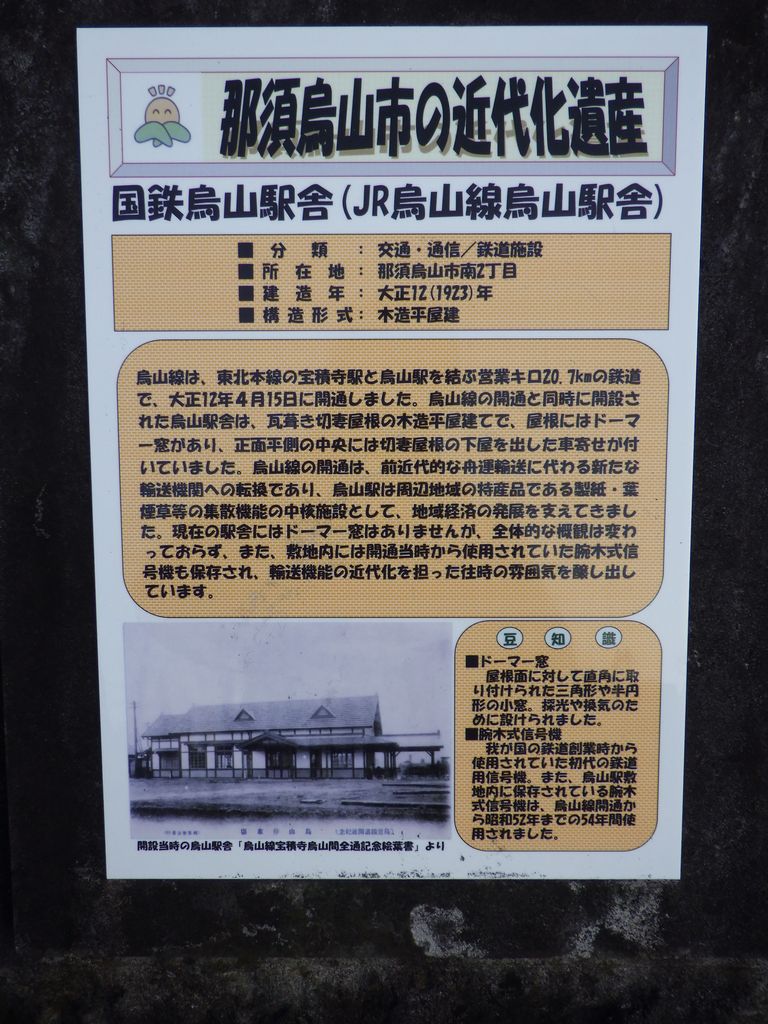 那須烏山市の近代化遺産
国鉄烏山駅舎(JR烏山線烏山駅舎)
■ 分類 : 交通・通信／鉄道施設
■ 所在地 : 那須烏山市南2丁目
■ 建造年 : 大正12(1923)年
■ 構造形式 : 木造平屋建
烏山線は、東北本線の宝積寺駅と烏山駅を結ぶ営業キロ20.7kmの鉄道
で、大正12年4月15日に開通しました。烏山線の開通と同時に開設さ
れた烏山駅舎は、瓦葺き切妻屋根の木造平屋建てで、屋根にはドーマ
ー窓があり、正面平側の中央には切妻屋根の下屋を出した車寄せが付
いていました。烏山線の開通は、前近代的な舟運輸送に代わる新たな
輸送機関への転換であり、烏山駅は周辺地域の特産品である製紙・葉
煙草等の集散機能の中核施設として、地域経済の発展を支えてきまし
た。現在の駅舎にはドーマー窓はありませんが、全体的な概観は変わ
っておらず、また、敷地内には開通当時から使用されていた腕木式信
号機も保存され、輸送機能の近代化を担った往時の雰囲気を醸し出し
ています。
豆知識
■ドーマー窓
屋根面に対して直角に取
り付けられた三角形や半円
形の小窓。採光や換気のた
めに設けられました。
■腕木式信号機
我が国の鉄道創業時から
使用されていた初代の鉄道
用信号機。また、烏山駅敷
地内に保存されている腕木
式信号機は、烏山線開通か
ら昭和52年までの54年間使
用されました。
開設当時の烏山駅舎「烏山線宝積寺烏山間全通記念絵葉書」より